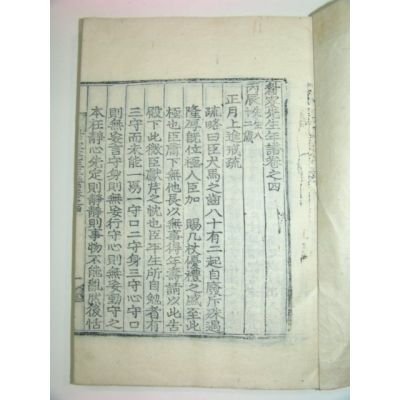 眉叟先生年譜卷之四
丙辰先生八十二歲
正月上進戒疏
疏略曰臣犬馬之齒八十有二起自廢斥殊遇
隆厚旣位極人臣加賜几杖優禮之盛至此
極也臣下無他長以無事得年壽請以此告
殿下此微臣獻芹之忱也臣平生所自勉者有
三守而未能一焉一守口二守身三守心守口
則無妄言守身則無妄行守心則無妄動守之
本在靜心先定則靜靜則事物不能亂然後恬